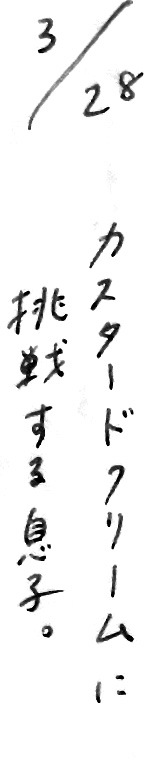 3/28
カスタードクリームに
挑戦する息子。